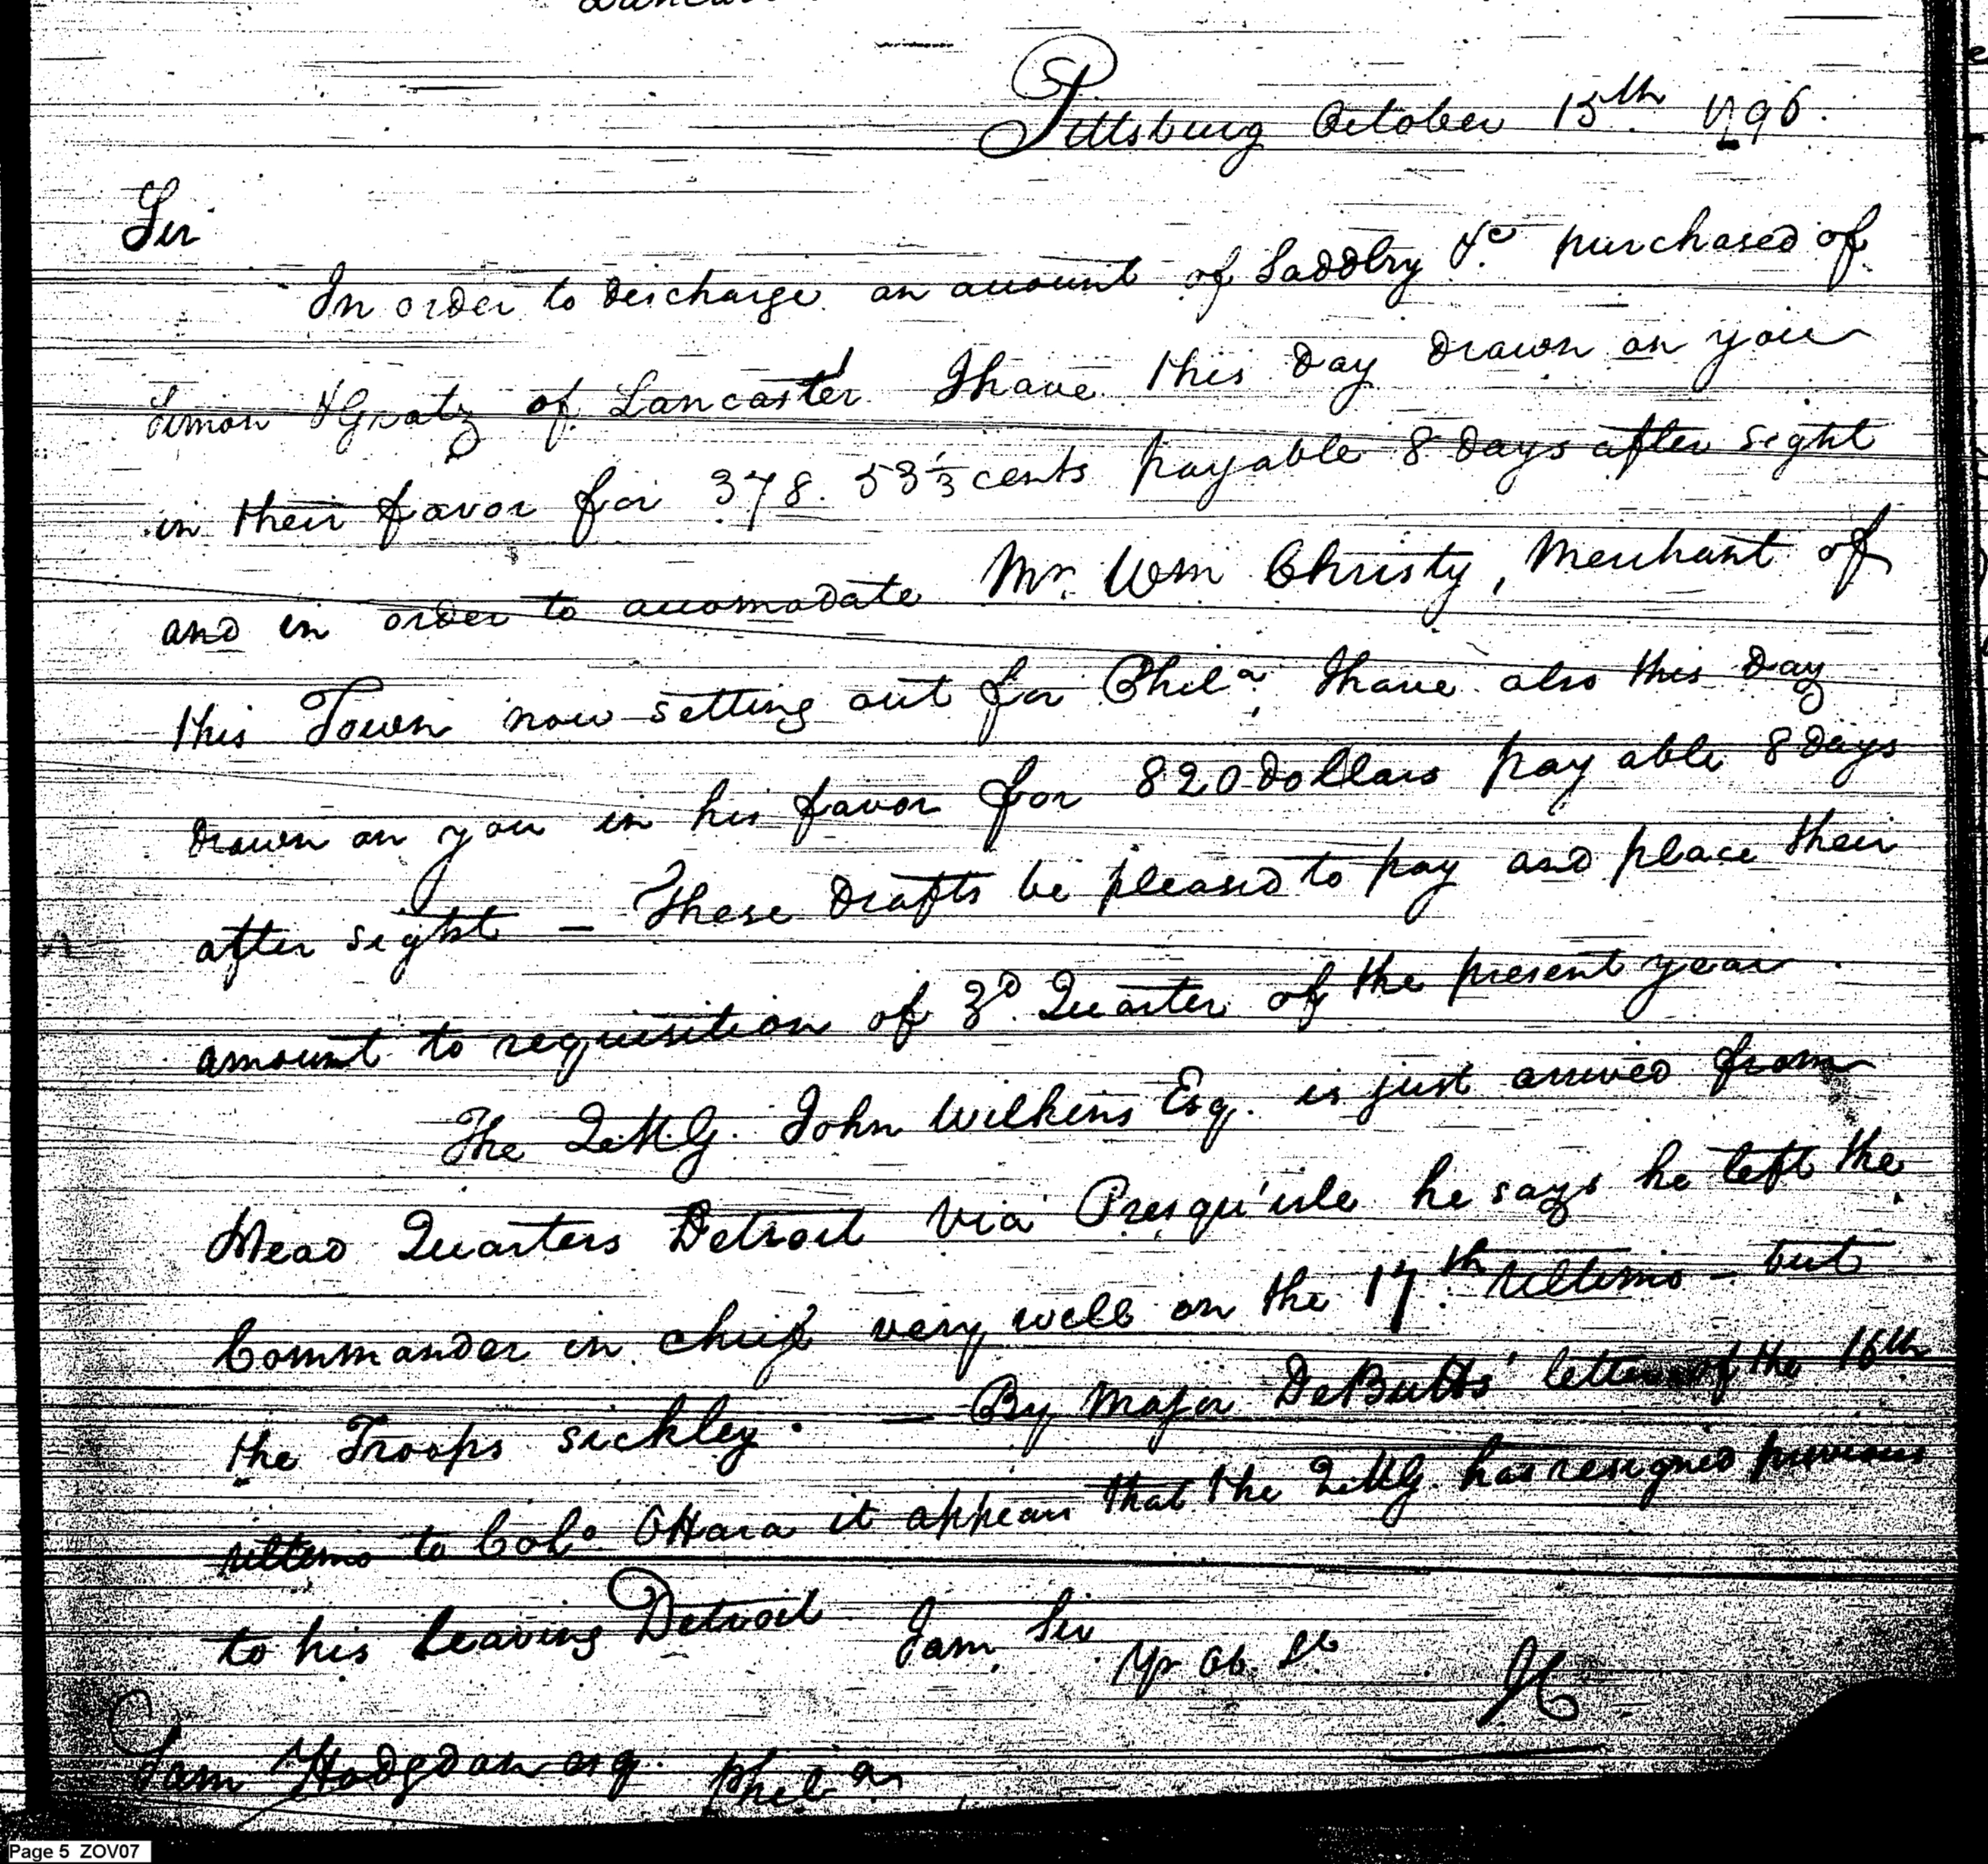 Pittsburg October 15th 1796.
Sir
In order to discharge an account of Saddlry &c purchased of
Simon & Gratz of Lancaster I have this day drawn on you
in their favor for 378. 53 1/3 cents payable 8 days after sight
and in order to accomodate Mr. Wm Christy, Merchant of
this Town now setting out for Phila. I have also this day
drawn on you in his favor for 820 dollars payable 8 days
after sight — These drafts be pleased to pay and place their
amount to requisition of 3d Quarter of the present year.
The Q.M.G. John Wilkins Esq. is just arrived from
Head Quarters Detroit via Presqu'isle he says he left the
Commander in chief very well on the 17th. Ultimo — but
the Troops sickley. — By Major DeButts' letter of the 16th
ultimo to Colo. OHara it appears that the Q.M.G. has resigned previous
to his leaving Detroit I am Sir
Yr Ob. St
Sam Hodgdon esq. Phila
Page 5 ZOV07